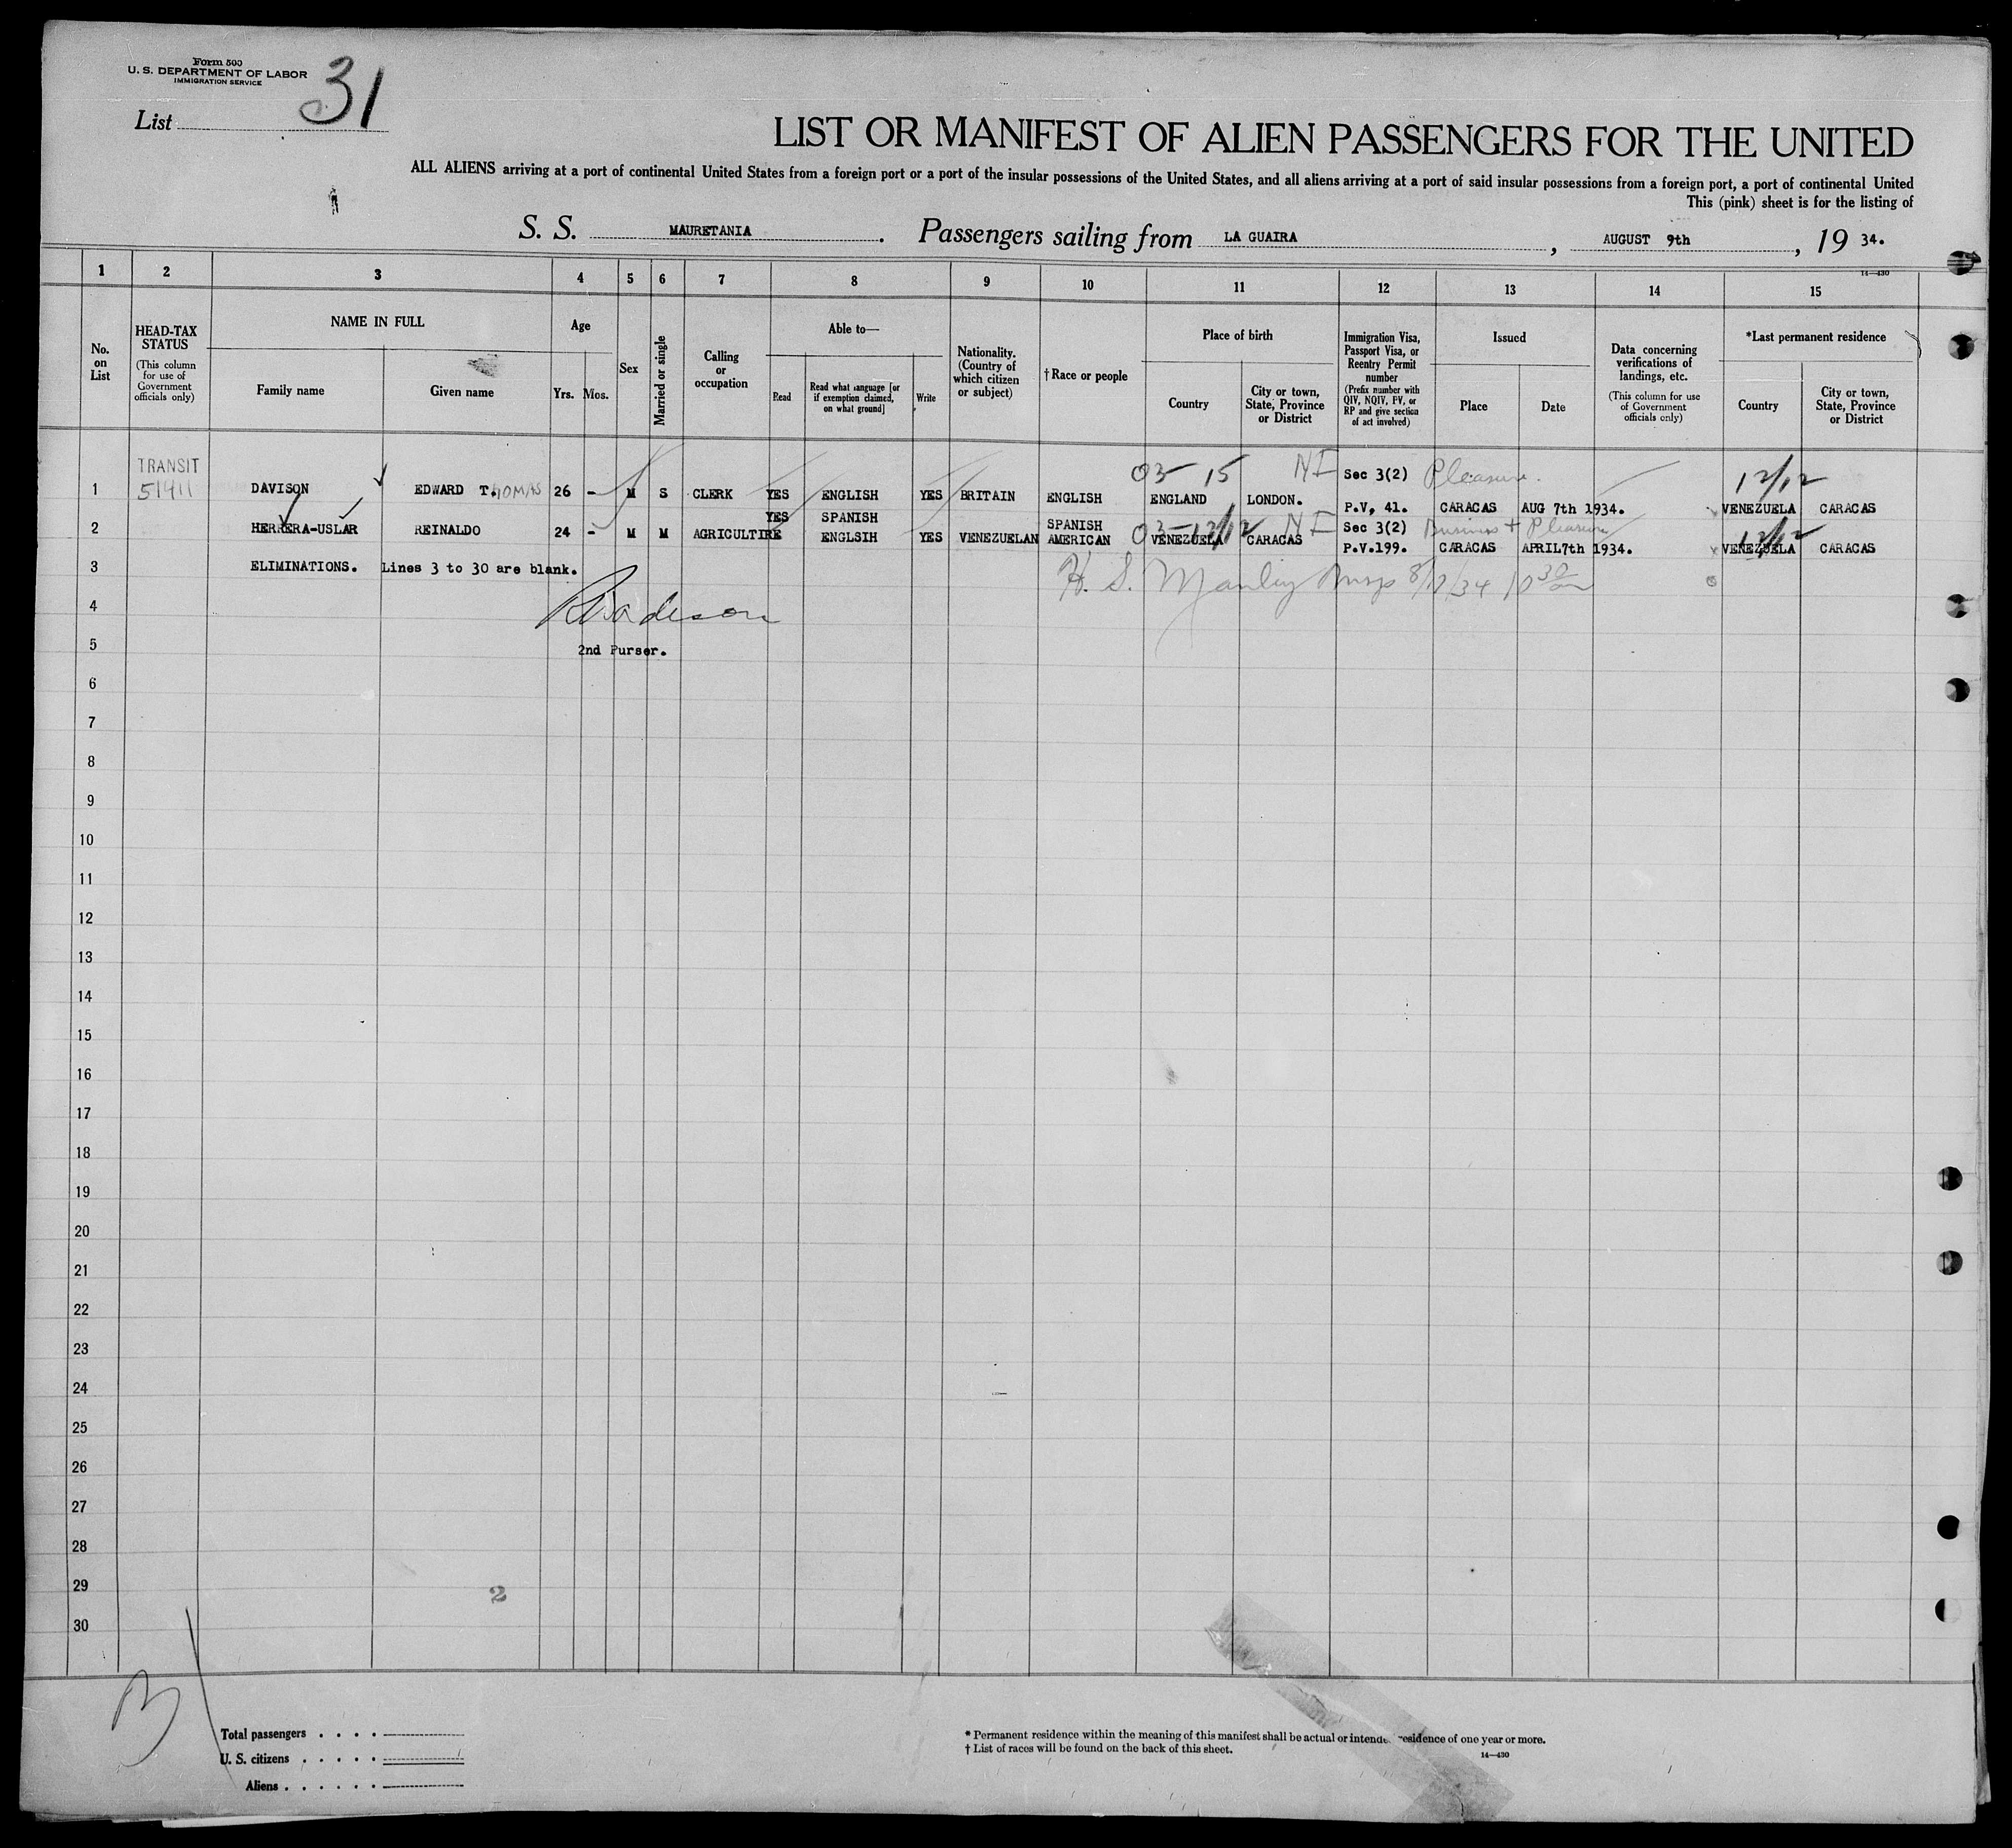 Form 500
U. S. DEPARTMENT OF LABOR
IMMIGRATION SERVICE
List 31
LIST OR MANIFEST OF ALIEN PASSENGERS FOR THE UNITED
ALL ALIENS arriving at a port of continental United States from a foreign port or a port of the insular possessions of the United States, and all aliens arriving at a port of said insular possessions from a foreign port, a port of continental United
This (pink) sheet is for the listing of
S. S. MAURETANIA . Passengers sailing from LA GUAIRA , AUGUST 9th , 19 34.
14—430
1 2 3 4 5 6 7 8 9 10 11 12 13 14 15
No. on List
HEAD-TAX STATUS
(This column for use of Government officials only)
NAME IN FULL
Family name Given name
Age
Yrs. Mos.
Sex
Married or single
Calling or occupation
Able to—
Read Read what language [or if exemption claimed, on what ground] Write
Nationality. (Country of which citizen or subject)
†Race or people
Place of birth
Country City or town, State, Province or District
Immigration Visa, Passport Visa, or Reentry Permit number
(Prefix number with QIV, NQIV, PV, or RP and give section of act involved)
Issued
Place Date
Data concerning verifications of landings, etc.
(This column for use of Government officials only)
*Last permanent residence
Country City or town, State, Province or District
TRANSIT 03-15 NI Sec 3(2) Pleasure. 12/12
1 51911 DAVISON EDWARD T.HOMAS 26 - M S CLERK YES ENGLISH YES BRITAIN ENGLISH ENGLAND LONDON. P.V, 41. CARACAS AUG 7th 1934. VENEZUELA CARACAS
YES SPANISH SPANISH 03-12/12 NI Sec 3(2) Business + Pleasure 12/12
2 HERRERA-USLAR REINALDO 24 - M M AGRICULTIRE ENGLSIH YES VENEZUELAN AMERICAN VENEZUELA CARACAS P.V.199. CARACAS APRIL7th 1934. VENEZUELA CARACAS
3 ELIMINATIONS. Lines 3 to 30 are blank. H. S. Manley Insp 8/17/34
4
5 2nd Purser.
6
7
8
9
10
11
12
13
14
15
16
17
18
19
20
21
22
23
24
25
26
27
28
29 2
30
B
Total passengers . . . .
U. S. citizens . . . . .
Aliens . . . . . .
* Permanent residence within the meaning of this manifest shall be actual or intended residence of one year or more.
† List of races will be found on the back of this sheet.
14—430